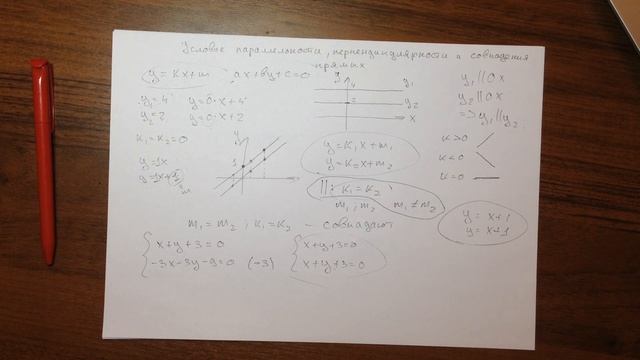 Условие параллельности, перпендикулярности и совпадения
прямых
y = kx+m ax+by+c=0
y₁=4 y=0·x+4
y₂=2 y=0·x+2
k₁=k₂=0
y=1x
y
4
y₁
2
y₂
x
y₁ || 0x
y₂ || 0x
=> y₁ || y₂
k>0
k<0
k=0
y
1
x
y=k₁x+m₁
y=k₂x+m₂
||: k₁=k₂
m₁; m₂ m₁≠m₂
y=x+1
y=x+1
m₁=m₂ ; k₁=k₂ – совпадают
x+y+3=0
-3x-3y-9=0 (-3)
x+y+3=0
x+y+3=0